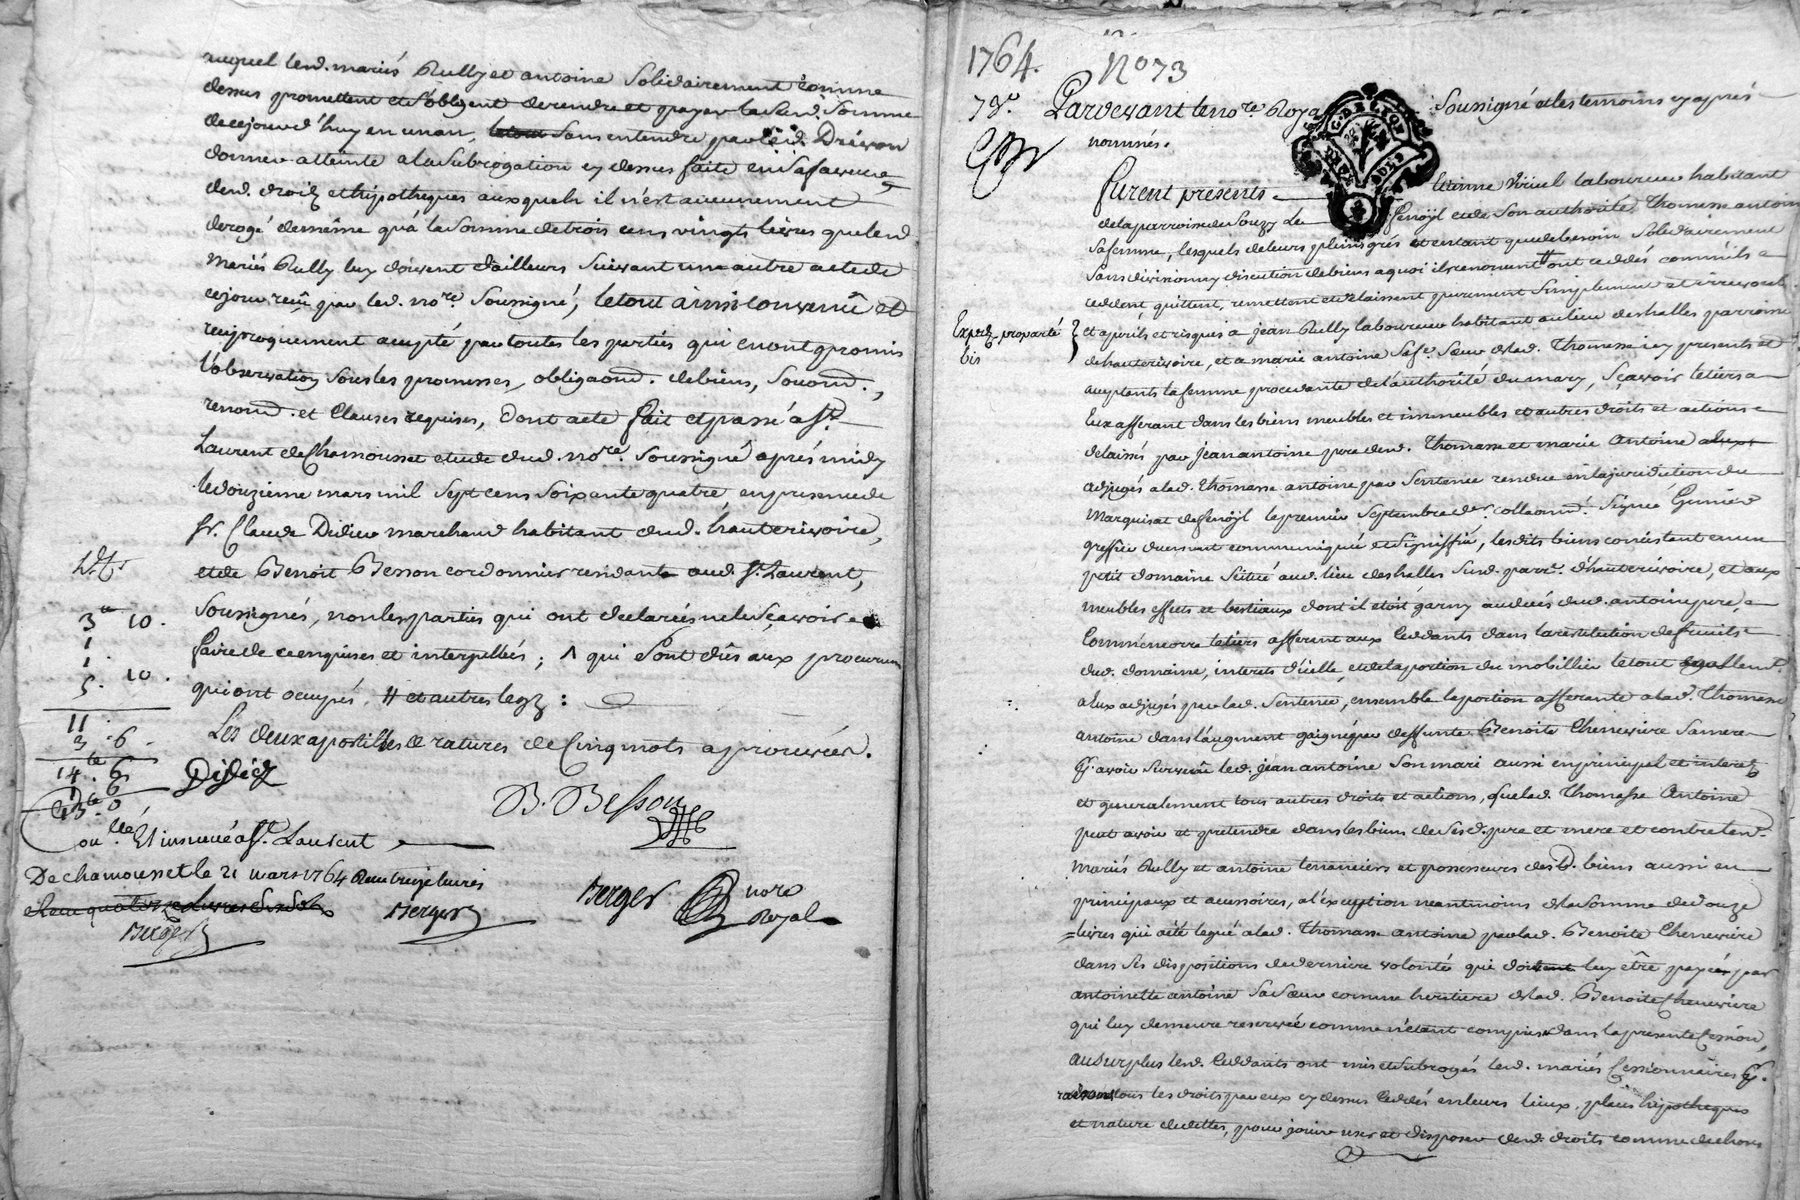 auquel lesd. mariés Rully et antoine Solidairement comme
dessus promettent et s'obligent de rendre et payer lad. Somme
de cejourd'huy en un an, Sans entendre par led. Drivon
donner atteinte a la Subrogation cy dessus faite en Sa faveur
desd. droits et hipotheques auxquels il n'est aucunement
derogé de même qu'à la Somme de trois cens vingts livres que lesd
mariés Rully luy doivent d'ailleurs Suivant une autre acte de
cejour reçû par led. no.re Soussigné, le tout ainsi convenû et
reciproquement accepté par toutes les parties qui en ont promis
l'observation Sous les promesses, obligaond. de biens, Soumd.,
renond. et Clauses requises, dont acte fait et passé a S.t
Laurent de Chamousset etude dud. no.re Soussigné après midy
le douzieme mars mil Sept cens Soixante quatre en presence de
Sr. Claude Didier marchand habitant dud. hauterivoire,
et de Benoit Besson cordonnier residant aud. St. Laurent,
Soussignés, non les parties qui ont declarées ne le Sçavoir
faire de ce enquises et interpellées; ^ qui Sont dûs aux procureurs
qui ont occupés, // et autres legz:
Les deux apostilles & ratures de Cinq mots aprouvées.
3 10.
1
1
5. 10.
11
3 6
14. 6
Didier
B. Besson
Con.llé Et insinué a St. Laurent
De chamousset le 21 mars 1764 Reçu treize livres
Berger
Berger
Berger
nore
Royal
1764. No 73
78e Pardevant le no.re Roya Soussigné et les temoins cy après
nommés.
furent presents Etienne Viruel laboureur habitant
de la parroisse de Souzy Le fenoÿl et de Son authorité Thomasse antoine
Sa femme, lesquels de leurs pleins grés et en tant que de besoin Solidairement
Sans division ny discution de biens a quoi ils renoncent ont ceddés comm'ils
ceddent, quittent, remettent et delaissent purement Simplement et irrevocablt
Exped. pro parté
bis
et a perils et risques a jean Rully laboureur habitant au lieu des halles parroisse
de hauterivoire, et a marie antoine Sa fe. Sœur de lad. Thomasse icy presents et
acceptants la femme procedante de l'authorité du mary, Sçavoir le tiers a
Eux afferant dans les biens meubles et immeubles et autres droits et actions
delaissés par jean antoine pere desd. Thomasse et marie Antoine
adjugés a lad. Thomasse antoine par Sentence rendue en la juridiction du
Marquisat de fenoÿl le premier Septembre der. collaonné. Signée Grimier
greffier duement communiquée et Signiffiée, lesdits biens consistant en un
petit domaine Scitué aud. lieu des halles Susd. parr. d'hauterivoire, et aux
meubles effets et bestiaux dont il etoit garny au decès dud. antoine pere,
Comm'encorre le tiers afferent aux Ceddants dans la restitution de fruits
dud. domaine, interets d'icelle, et de la portion du mobillier le tout egallemt
a Eux adjugés par lad. Sentence, ensemble la portion afferante a lad. Thomasse
antoine dans l'augment gaigné par deffunte Benoite Chenevière Sa mere
pr. avoir Survecû led. jean antoine Son mari aussi en principal et interetz
et generalement tous autres droits et actions, que lad. Thomasse Antoine
peut avoir et pretendre dans les biens de Sesd. pere et mere et contre lesd.
mariés Rully et antoine tenanciers et possesseurs desd. biens aussi en
principaux et accessoires, a l'exception neantmoins de la Somme de douze
livres qui a été legué a lad. Thomasse antoine par lad. Benoite Chenevière
dans Ses dispositions de derniere volonté qui doivent luy être payées par
antoinette antoine Sa Sœur comme heritiere de lad. Benoite Chenevière
qui luy demeure reservée comme n'étant comprise dans la presente Cession,
au Surplus lesd. Ceddants ont mis et Subrogés lesd. mariés Cessionnaires pr.
raison tous les droits par eux cy dessus Ceddés en leurs lieux, places hipotheques
et nature de dettes, pour jouir user et disposer desd. droits comme de choses